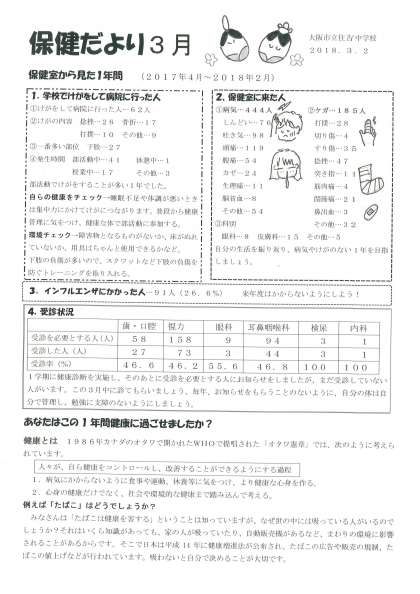 保健だより3月
大阪市立住吉中学校
2018.3.2
保健室から見た1年間 (2017年4月~2018年2月)
1.学校でけがをして病院に行った人
①けがをして病院に行った人…62人
②けがの内容 捻挫…28 骨折…17
打撲…10 その他…9
③一番多い部位 下肢…27
④発生時間 部活動中…41 休憩中…1
授業中…17 その他…3
部活動でけがをすることが多い1年でした。
自らの健康をチェック→睡眠不足や体調が悪いとき
は集中力にかけてけがにつながります。普段から健康
管理に気をつけ、健康な体で部活動に参加する。
環境チェック→障害物となるものがないか、床がぬれ
ていないか、用具はちゃんと使用できるかなど。
下肢の負傷が多いので、スクワットなど下肢の負傷を
防ぐトレーニングを取り入れる。
2.保健室に来た人
①病気…444人 ②ケガ…185人
しんどい…76 打撲…28
吐き気…98 切り傷…4
頭痛…119 すり傷…35
腹痛…54 捻挫…47
カゼ…24 突き指…11
生理痛…11 筋肉痛…4
脳貧血…8 関節痛…21
その他…54 鼻出血…3
③科別 その他…32
眼科…8 皮膚科…15 その他…5
自分の生活を振り返り、病気やけがのない1年を目指
しましょう。
3.インフルエンザにかかった人…91人(26.6%) 来年度はかからないようにしよう!
4.受診状況
歯・口腔 視力 眼科 耳鼻咽喉科 検尿 内科
受診を必要とする人(人) 58 158 9 94 3 1
受診した人(人) 27 73 3 44 3 1
受診率(%) 46.6 46.2 55.6 46.8 100 100
1学期に健康診断を実施し、そのあとに受診を必要とする人にお知らせをしましたが、まだ受診していない
人がいます。この3月中に診てもらいましょう。毎年、お知らせをもらうことのないように、自分の体は自
分で管理し、勉強に支障のないようにしましょう。
あなたはこの1年間健康に過ごせましたか?
健康とは 1986年カナダのオタワで開かれたWHOで提唱された「オタワ憲章」では、次のように考えら
れています。
人々が、自ら健康をコントロールし、改善することができるようにする過程
1.病気にかからないように食事や運動、休養等に気をつけ、より健康な心身を作る。
2.心身の健康だけでなく、社会や環境的な健康まで踏み込んで考える。
例えば「たばこ」はどうでしょうか?
みなさんは「たばこは健康を害する」ということは知っていますが、なぜ世の中には吸っている人がいるので
しょうか?それはいくら知識があっても、家の人が吸っていたり、自動販売機があるなど、まわりの環境に影響
されることがあるからです。そこで日本は平成14年に健康増進法が公布され、たばこの広告や販売の規制、た
ばこの値上げなどが行われています。吸わないと自分で決めることが大切です。